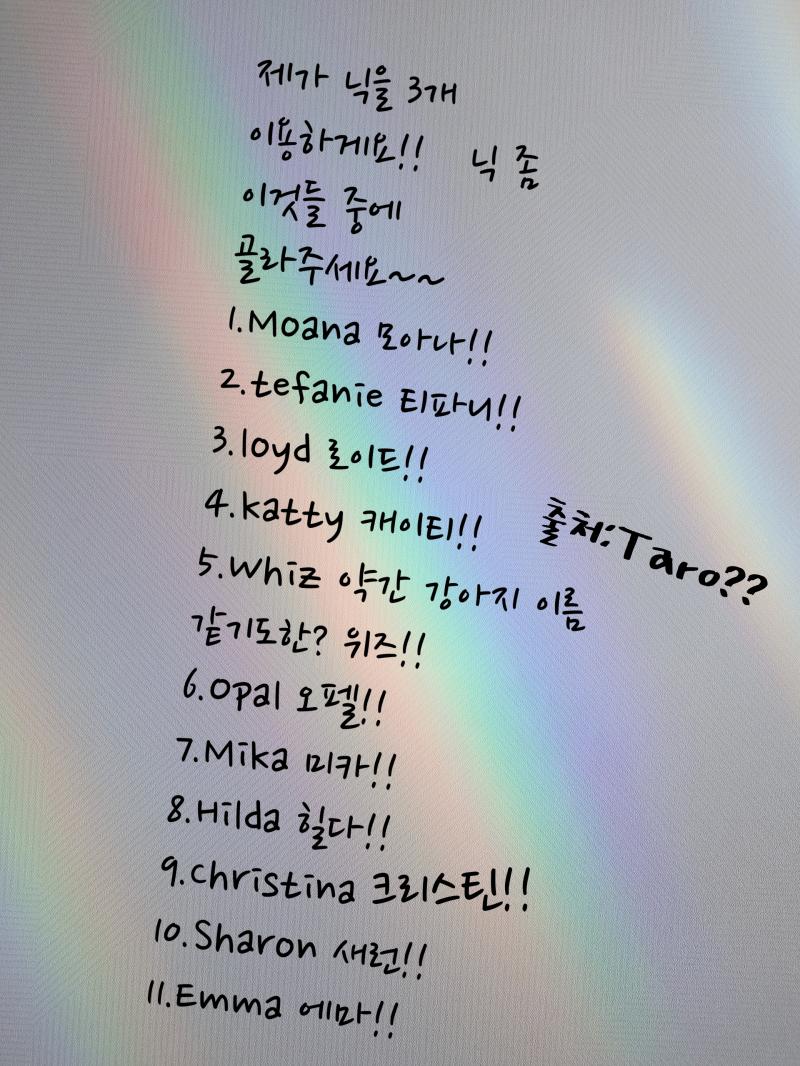 제가 닉을 3개
이용하게요!! 닉 좀
이것들 중에
골라주세요~~
1.Moana 모아나!!
2.tefanie 티파니!!
3.loyd 로이드!!
4.katty 캐이티!!
출처:Taro??
5.Whiz 약간 강아지 이름
같기도한? 위즈!!
6.Opal 오펠!!
7.Mika 미카!!
8.Hilda 힐다!!
9.Christina 크리스틴!!
10.Sharon 새런!!
11.Emma 에마!!